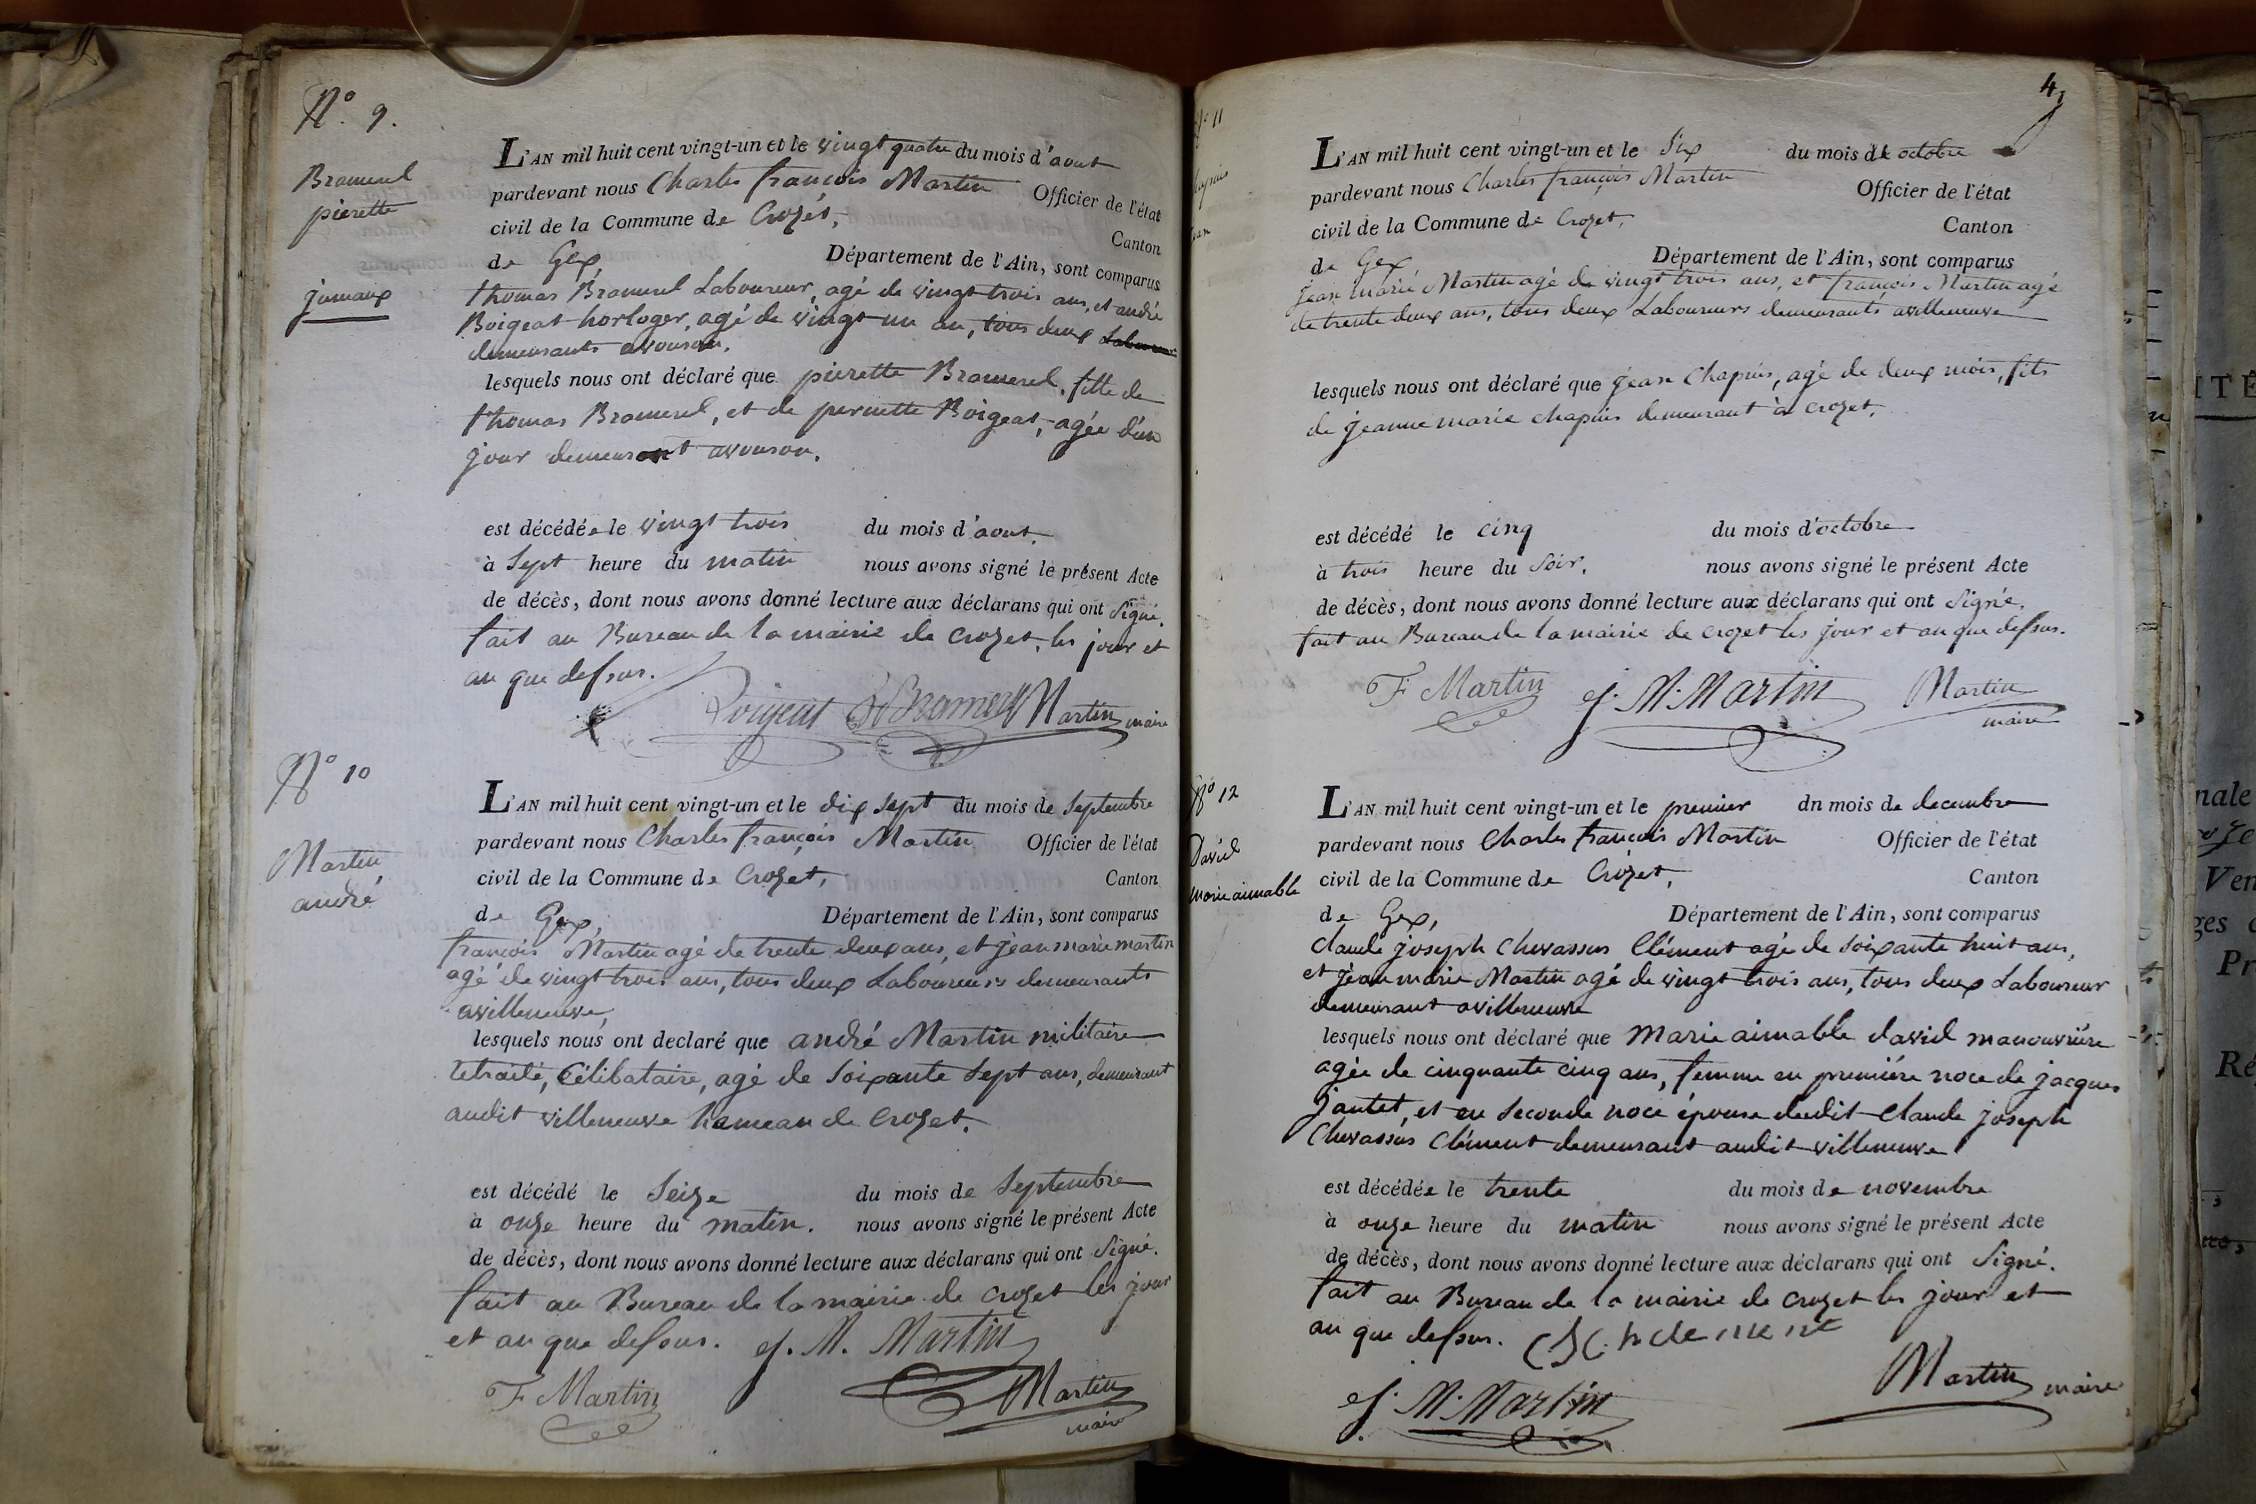 N.° 9.
Bramerel
pierette
jumaux
L'AN mil huit cent vingt-un et le vingt quatre du mois d'aout
pardevant nous Charles françois Martin Officier de l'état
civil de la Commune de Crozet, Canton
de Gex Département de l'Ain, sont comparus
thomas Bramerel Laboureur, agé de vingt trois ans, et andré
Boigeat horloger, agé de vingt un an, tous deux
demeurants avouson.
lesquels nous ont déclaré que pierette Bramerel, fille de
thomas Bramerel, et de pernette Boigeat, agée d'un
jour demeurant avouson.
est décédée le vingt trois du mois d'aout.
à Sept heure du matin nous avons signé le présent Acte
de décès, dont nous avons donné lecture aux déclarans qui ont Signé.
fait au Bureau de la mairie de Crozet, les jour et
an que dessus.
Boigeat Bramerel Martin maire
N° 10
Martin
andré
L'AN mil huit cent vingt-un et le dix sept du mois de Septembre
pardevant nous Charles françois Martin Officier de l'état
civil de la Commune de Crozet, Canton
de Gex, Département de l'Ain, sont comparus
françois Martin agé de trente deux ans, et jean marie martin
agé de vingt trois ans, tous deux Laboureurs demeurants
avilleneuve,
lesquels nous ont declaré que andré Martin militaire
retraité, Célibataire, agé de Soixante Sept ans, demeurant
audit villeneuve hameau de Crozet.
est décédé le Seize du mois de Septembre
à onze heure du matin. nous avons signé le présent Acte
de décès, dont nous avons donné lecture aux déclarans qui ont Signé.
fait au Bureau de la mairie de Crozet les jour
et an que dessus. J. M. Martin
F Martin Martin
maire
4
N° 11
L'AN mil huit cent vingt-un et le Six du mois de octobre
pardevant nous Charles françois Martin Officier de l'état
civil de la Commune de Crozet, Canton
de Gex Département de l'Ain, sont comparus
jean marie Martin agé de vingt trois ans, et françois Martin agé
de trente deux ans, tous deux Laboureurs demeurants avilleneuve
lesquels nous ont déclaré que jean Chapuis, agé de deux mois, fils
de jeanne marie chapuis demeurant à crozet.
est décédé le cinq du mois d'octobre
à trois heure du Soir. nous avons signé le présent Acte
de décès, dont nous avons donné lecture aux déclarans qui ont Signé.
fait au Bureau de la mairie de crozet les jour et an que dessus.
F Martin J. M. Martin Martin
maire
N° 12
David
marie aimable
L'AN mil huit cent vingt-un et le premier dn mois de decembre
pardevant nous Charles françois Martin Officier de l'état
civil de la Commune de Crozet, Canton
de Gex, Département de l'Ain, sont comparus
claude joseph Chevassus Clément agé de Soixante huit ans,
et jean marie Martin agé de vingt trois ans, tous deux Laboureur
demeurant avilleneuve
lesquels nous ont déclaré que Marie aimable david manouvriere
agée de cinquante cinq ans, femme en première noce de jacques
jantet, et en Seconde noce épouse dudit Claude joseph
Chevassus Clément demeurant audit villeneuve
est décédée le trente du mois de novembre
à onze heure du matin nous avons signé le présent Acte
de décès, dont nous avons donné lecture aux déclarans qui ont Signé.
fait au Bureau de la mairie de Crozet les jour et
an que dessus.
J. M. Martin Martin maire